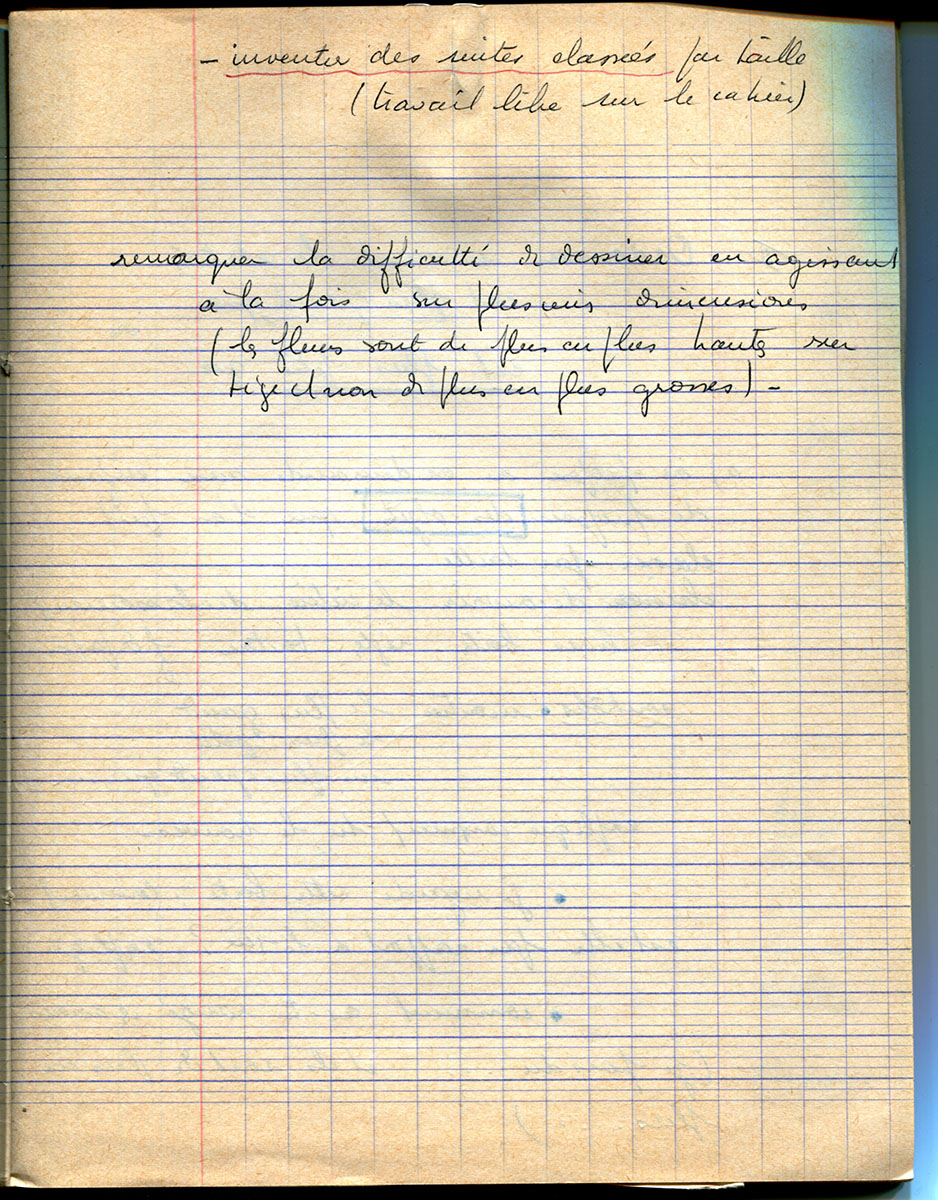 - inventer des suites classées par taille
(travail libre sur le cahier)
remarquer la difficulté de dessiner en agissant
à la fois sur plusieurs dimensions
(les fleurs sont de plus en plus hautes sur
tige et non de plus en plus grosses) -